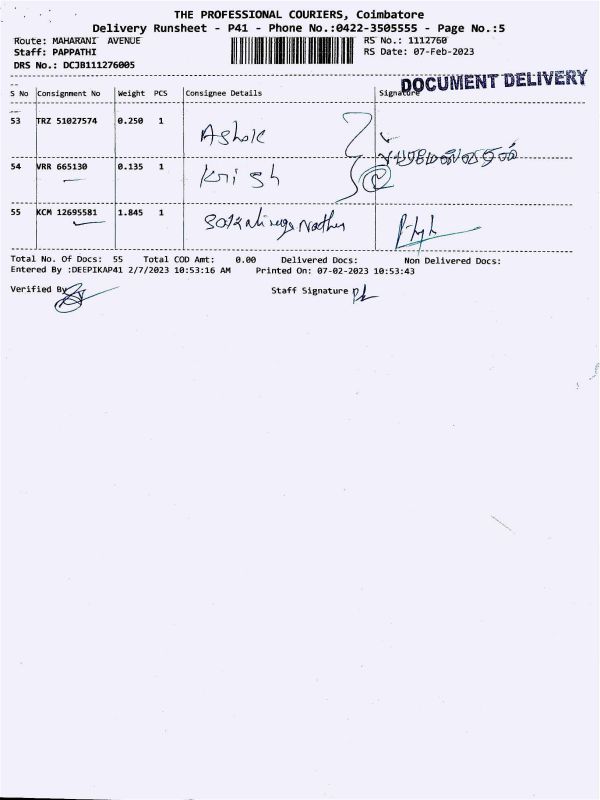 THE PROFESSIONAL COURIERS, Coimbatore
Delivery Runsheet - P41 - Phone No.:0422-3505555 - Page No.:5
Route: MAHARANI AVENUE
RS No.: 1112760
Staff: PAPPATHI
RS Date: 07-Feb-2023
DRS No.: DCJB111276005
DOCUMENT DELIVERY
S No Consignment No Weight PCS Consignee Details Signature
53 TRZ 51027574 0.250 1 Ashok
54 VRR 665130 0.135 1 Krish
55 KCM 12695581 1.845 1
Total No. Of Docs: 55 Total COD Amt: 0.00 Delivered Docs: Non Delivered Docs:
Entered By :DEEPIKAP41 2/7/2023 10:53:16 AM Printed On: 07-02-2023 10:53:43
Verified By
Staff Signature